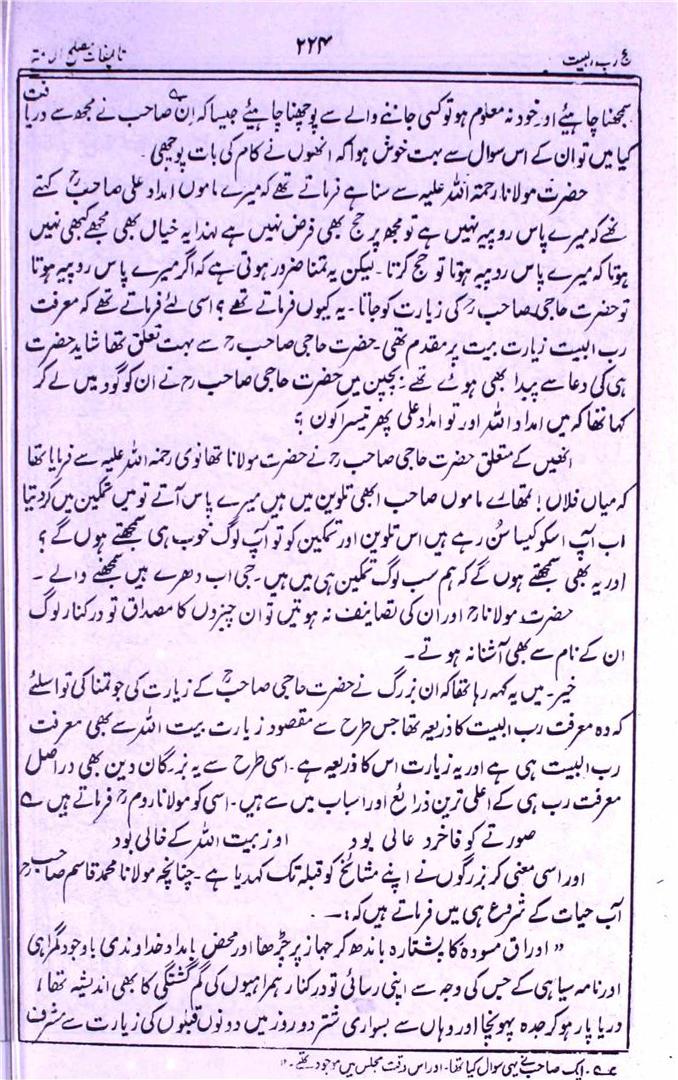 حج رب البیت ۲۲۴ تالیفات مصلح الامۃ
سمجھنا چاہیئے اور خود نہ معلوم ہو تو کسی جاننے والے سے پوچھنا چاہیئے جیسا کہ ان صاحب نے مجھ سے دریافت
کیا میں تو ان کے اس سوال سے بہت خوش ہوا کہ انھوں نے کام کی بات پوچھی۔
حضرت مولانا رحمۃ اللہ علیہ سے سنا ہے فرماتے تھے کہ میرے ماموں امداد علی صاحبؒ کہتے
تھے کہ میرے پاس روپیہ نہیں ہے تو مجھ پر حج بھی فرض نہیں ہے لہٰذا یہ خیال بھی مجھے کبھی نہیں
ہوتا کہ میرے پاس روپیہ ہوتا تو حج کرتا۔ لیکن یہ تمنا ضرور ہوتی ہے کہ اگر میرے پاس روپیہ ہوتا
تو حضرت حاجی صاحبؒ کی زیارت کو جاتا۔ یہ کیوں فرماتے تھے؟ اسی لئے فرماتے تھے کہ معرفت
رب البیت زیارت بیت پر مقدم تھی۔ حضرت حاجی صاحبؒ سے بہت تعلق تھا شاید حضرت
ہی کی دعا سے پیدا بھی ہوئے تھے۔ بچپن میں حضرت حاجی صاحبؒ نے ان کو گود میں لے کر
کہا تھا کہ میں امداد اللہ اور تو امداد علی پھر تیسرا کون؟
انھیں کے متعلق حضرت حاجی صاحبؒ نے حضرت مولانا تھانوی رحمۃ اللہ علیہ سے فرمایا تھا
کہ میاں فلاں! تمھارے ماموں صاحب ابھی تلوین میں ہیں میرے پاس آتے تو میں تمکین میں کر دیتا
اب آپ اسکو کیسا سن رہے ہیں اس تلوین اور تمکین کو تو آپ لوگ خوب ہی سمجھتے ہوں گے؟
اور یہ بھی سمجھتے ہوں گے کہ ہم سب لوگ تمکین ہی میں ہیں۔ جی اب دھرے ہیں سمجھنے والے۔
حضرت مولاناؒ اور ان کی تصانیف نہ ہوتیں تو ان چیزوں کا مصداق تو درکنار لوگ
ان کے نام سے بھی آشنا نہ ہوتے۔
خیر۔ میں یہ کہہ رہا تھا کہ ان بزرگ نے حضرت حاجی صاحبؒ کے زیارت کی جو تمنا کی تو اسلئے
کہ وہ معرفت رب البیت کا ذریعہ تھا جس طرح سے مقصود زیارت بیت اللہ سے بھی معرفت
رب البیت ہی ہے اور یہ زیارت اس کا ذریعہ ہے۔ اسی طرح سے یہ بزرگان دین بھی دراصل
معرفت رب ہی کے اعلیٰ ترین ذرائع اور اسباب میں سے ہیں۔ اسی کو مولانا رومؒ فرماتے ہیں ؎
صورتے کو فاخرد عالی بود او ز بیت اللہ کے خالی بود
اور اسی معنی کر بزرگوں نے اپنے مشائخ کو قبلہ تک کہدیا ہے۔ چنانچہ مولانا محمد قاسم صاحبؒ
آب حیات کے شروع ہی میں فرماتے ہیں کہ:۔
“ اوراق مسودہ کا پشتارہ باندھ کر جہاز پر چڑھا اور محض بامداد خداوندی باوجود گمراہی
اور نامہ سیاہی کے جس کی وجہ سے اپنی رسائی تو درکنار ہمراہیوں کی گم گشتگی کا بھی اندیشہ تھا،
دریا پار ہو کر جدہ پہونچا اور وہاں سے بسواری شتر دو روز میں دونوں قبلوں کی زیارت سے مشرف
ایک صاحب نے یہی سوال کیا تھا۔ اور اس وقت مجلس میں موجود تھے۔